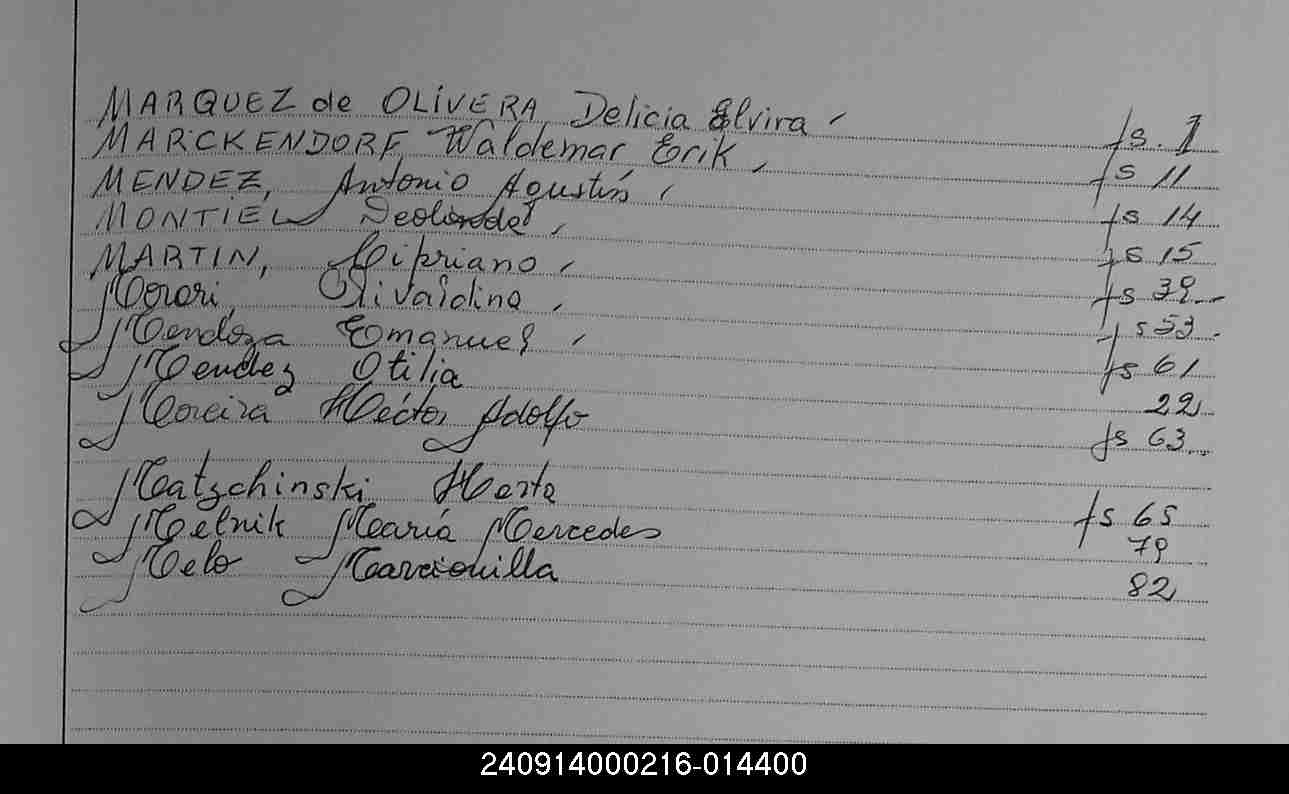 MARQUEZ de OLIVERA Delicia Elvira fs. 1
MARCKENDORF, Waldemar Erik, fs 11
MENDEZ, Antonio Agustín, fs 14
MONTIEL Deolinda, fs 15
MARTIN, Cipriano, fs 39
Morari, Olivaldina, fs 53
Mendoza Emanuel, fs 61
Mendez Otilia 22
Moreira Héctor Adolfo fs 63
Matzchinski Herta fs 65
Melnik María Mercedes 79
Melo 82
240914000216-014400